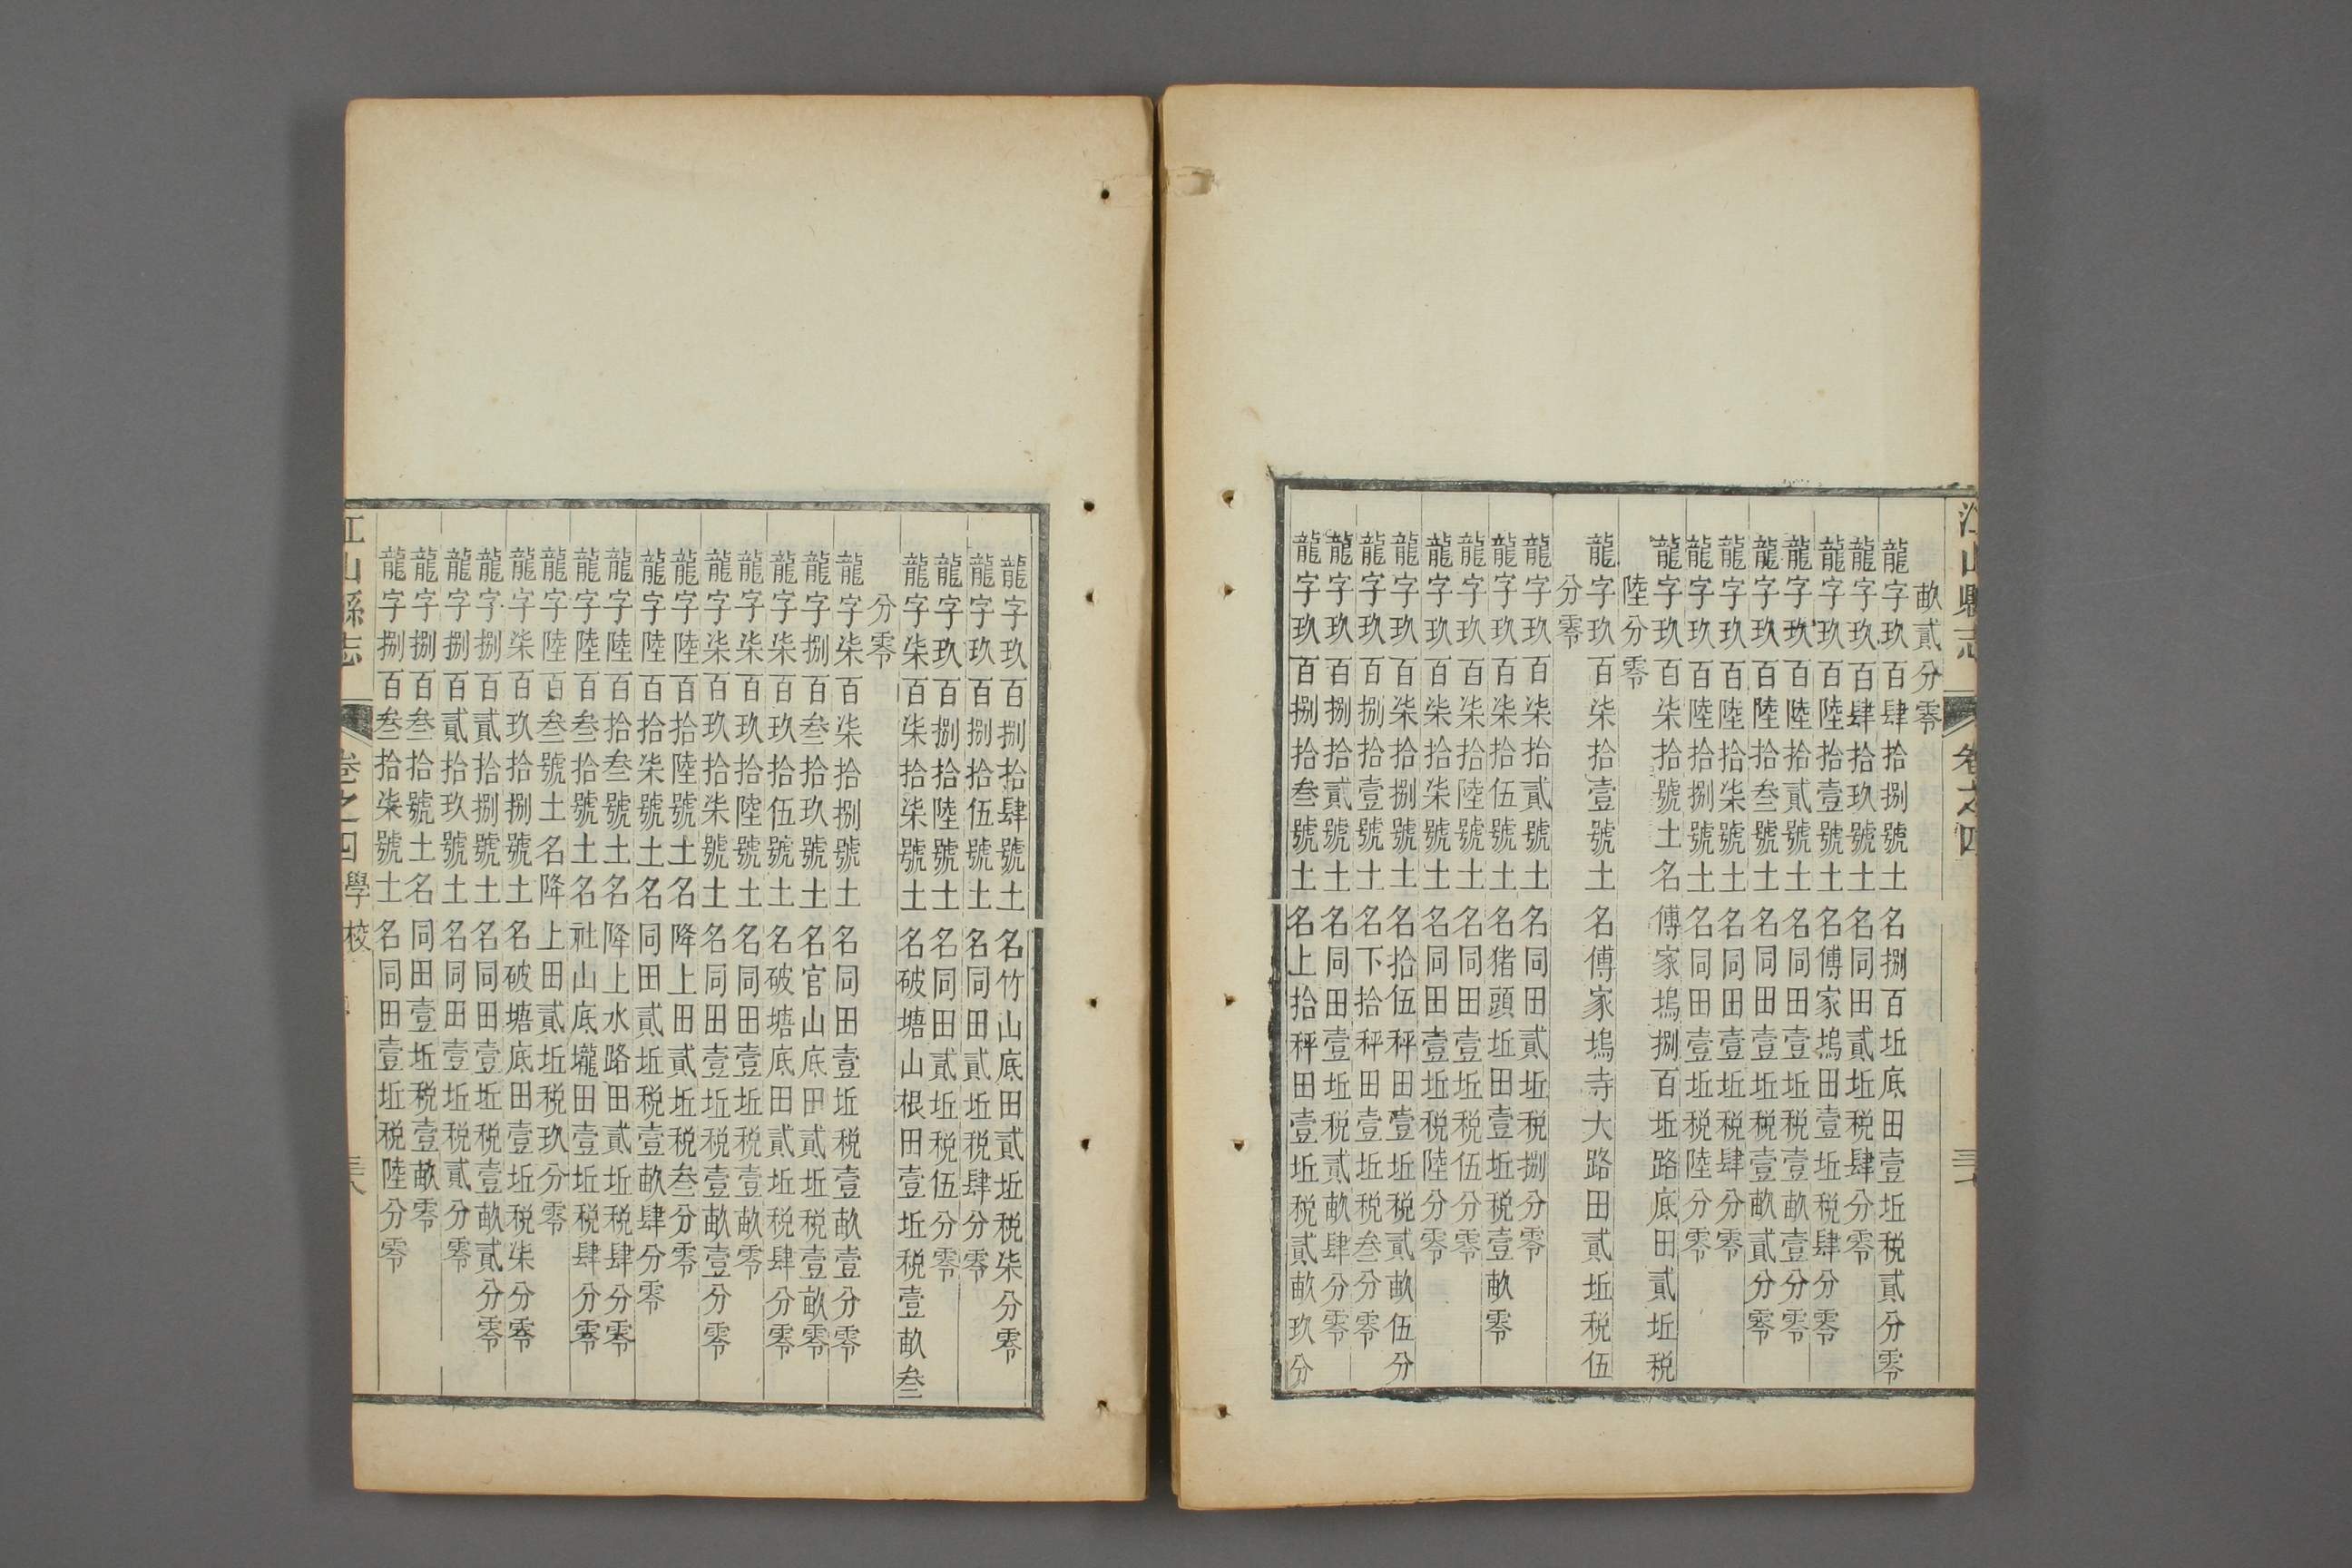 江山縣志
卷之四
畝貳分零
龍字玖百肆拾捌號土名捌百坵底田壹坵税貳分零
龍字玖百肆拾玖號土名同田貳坵税肆分零
龍字玖百陸拾壹號土名傅家塢田壹坵税肆分零
龍字玖百陸拾貳號土名同田壹坵税壹畝壹分零
龍字玖百陸拾叁號土名同田壹坵税壹畝貳分零
龍字玖百陸拾柒號土名同田壹坵税肆分零
龍字玖百陸拾捌號土名同田壹坵税陸分零
龍字玖百柒拾號土名傅家塢捌百坵路底田貳坵税
陸分零
龍字玖百柒拾壹號土名傅家塢寺大路田貳坵税伍
分零
龍字玖百柒拾貳號土名同田貳坵税捌分零
龍字玖百柒拾伍號土名猪頭坵田壹坵税壹畝零
龍字玖百柒拾陸號土名同田壹坵税伍分零
龍字玖百柒拾柒號土名同田壹坵税陸分零
龍字玖百柒拾捌號土名拾伍秤田壹坵税貳畝伍分
龍字玖百捌拾壹號土名下拾秤田壹坵税叁分零
龍字玖百捌拾貳號土名同田壹坵税貳畝肆分零
龍字玖百捌拾叁號土名上拾秤田壹坵税貳畝玖分
龍字玖百捌拾肆號土名竹山底田貳坵税柒分零
龍字玖百捌拾伍號土名同田貳坵税肆分零
龍字玖百捌拾陸號土名同田貳坵税伍分零
龍字柒百柒拾柒號土名破塘山根田壹坵税壹畝叁
分零
龍字柒百柒拾捌號土名同田壹坵税壹畝壹分零
龍字捌百叁拾玖號土名官山底田貳坵税壹畝零
龍字柒百玖拾伍號土名破塘底田貳坵税肆分零
龍字柒百玖拾陸號土名同田壹坵税壹畝零
龍字柒百玖拾柒號土名同田壹坵税壹畝壹分零
龍字陸百拾陸號土名降上田貳坵税叁分零
龍字陸百拾柒號土名同田貳坵税壹畝肆分零
龍字陸百拾叁號土名降上水路田貳坵税肆分零
龍字陸百叁拾號土名社山底壠田壹坵税肆分零
龍字陸百叁號土名降上田貳坵税玖分零
龍字柒百玖拾捌號土名破塘底田壹坵税柒分零
龍字捌百貳拾捌號土名同田壹坵税壹畝貳分零
龍字捌百貳拾玖號土名同田壹坵税貳分零
龍字捌百叁拾號土名同田壹坵税壹畝零
龍字捌百叁拾柒號土名同田壹坵税陸分零
江山縣志
卷之四
學校
三十八